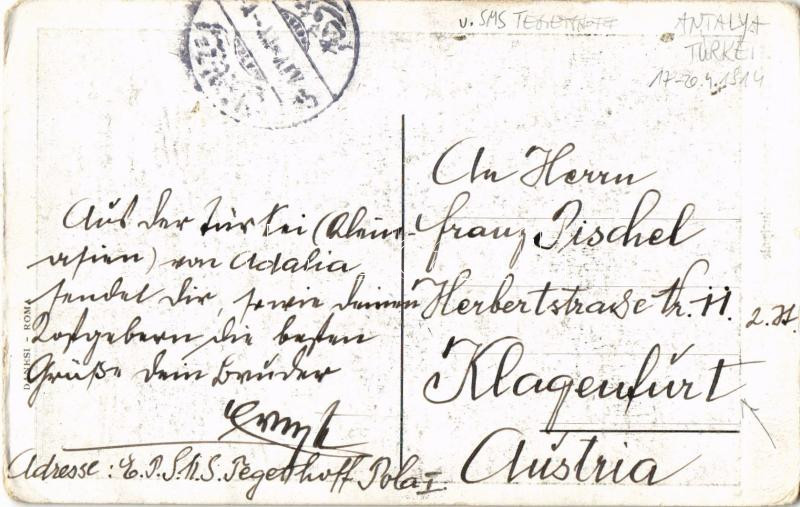 v. SMS TEGETTHOFF
ANTALYA
TÜRKEI
17-20.4.1914
Aus der Türkei (Klein-
asien) von Adalia
sendet Dir, sowie deinen
Kostgebern die besten
Grüße dein Bruder
Ernst
Adresse: E. P. S.M.S. Tegetthoff Pola I.
An Herrn
Franz Pischel
Herbertstraße Nr. 11. 2. St.
Klagenfurt
Austria
DANESI - ROMA